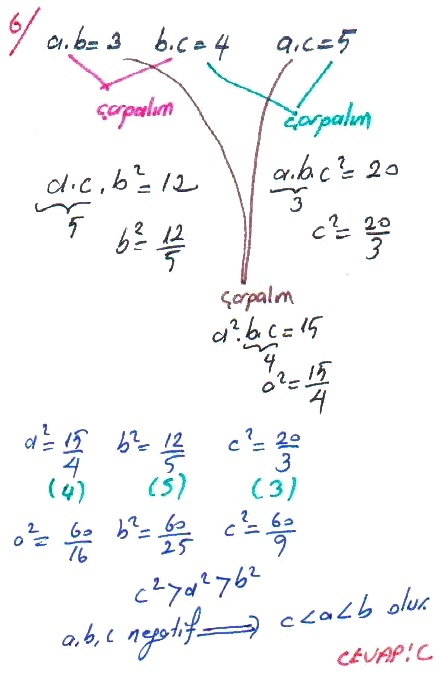 6/
a.b=3 b.c=4 a.c=5
çarpalım çarpalım
a.c.b²=12 a.b.c²=20
5 3
b²=12/5 c²=20/3
çarpalım
a².b.c=15
4
a²=15/4
a²=15/4 b²=12/5 c²=20/3
(4) (5) (3)
a²=60/16 b²=60/25 c²=60/9
c²>a²>b²
a,b,c negatif ⟹ c<a<b olur.
CEVAP:C